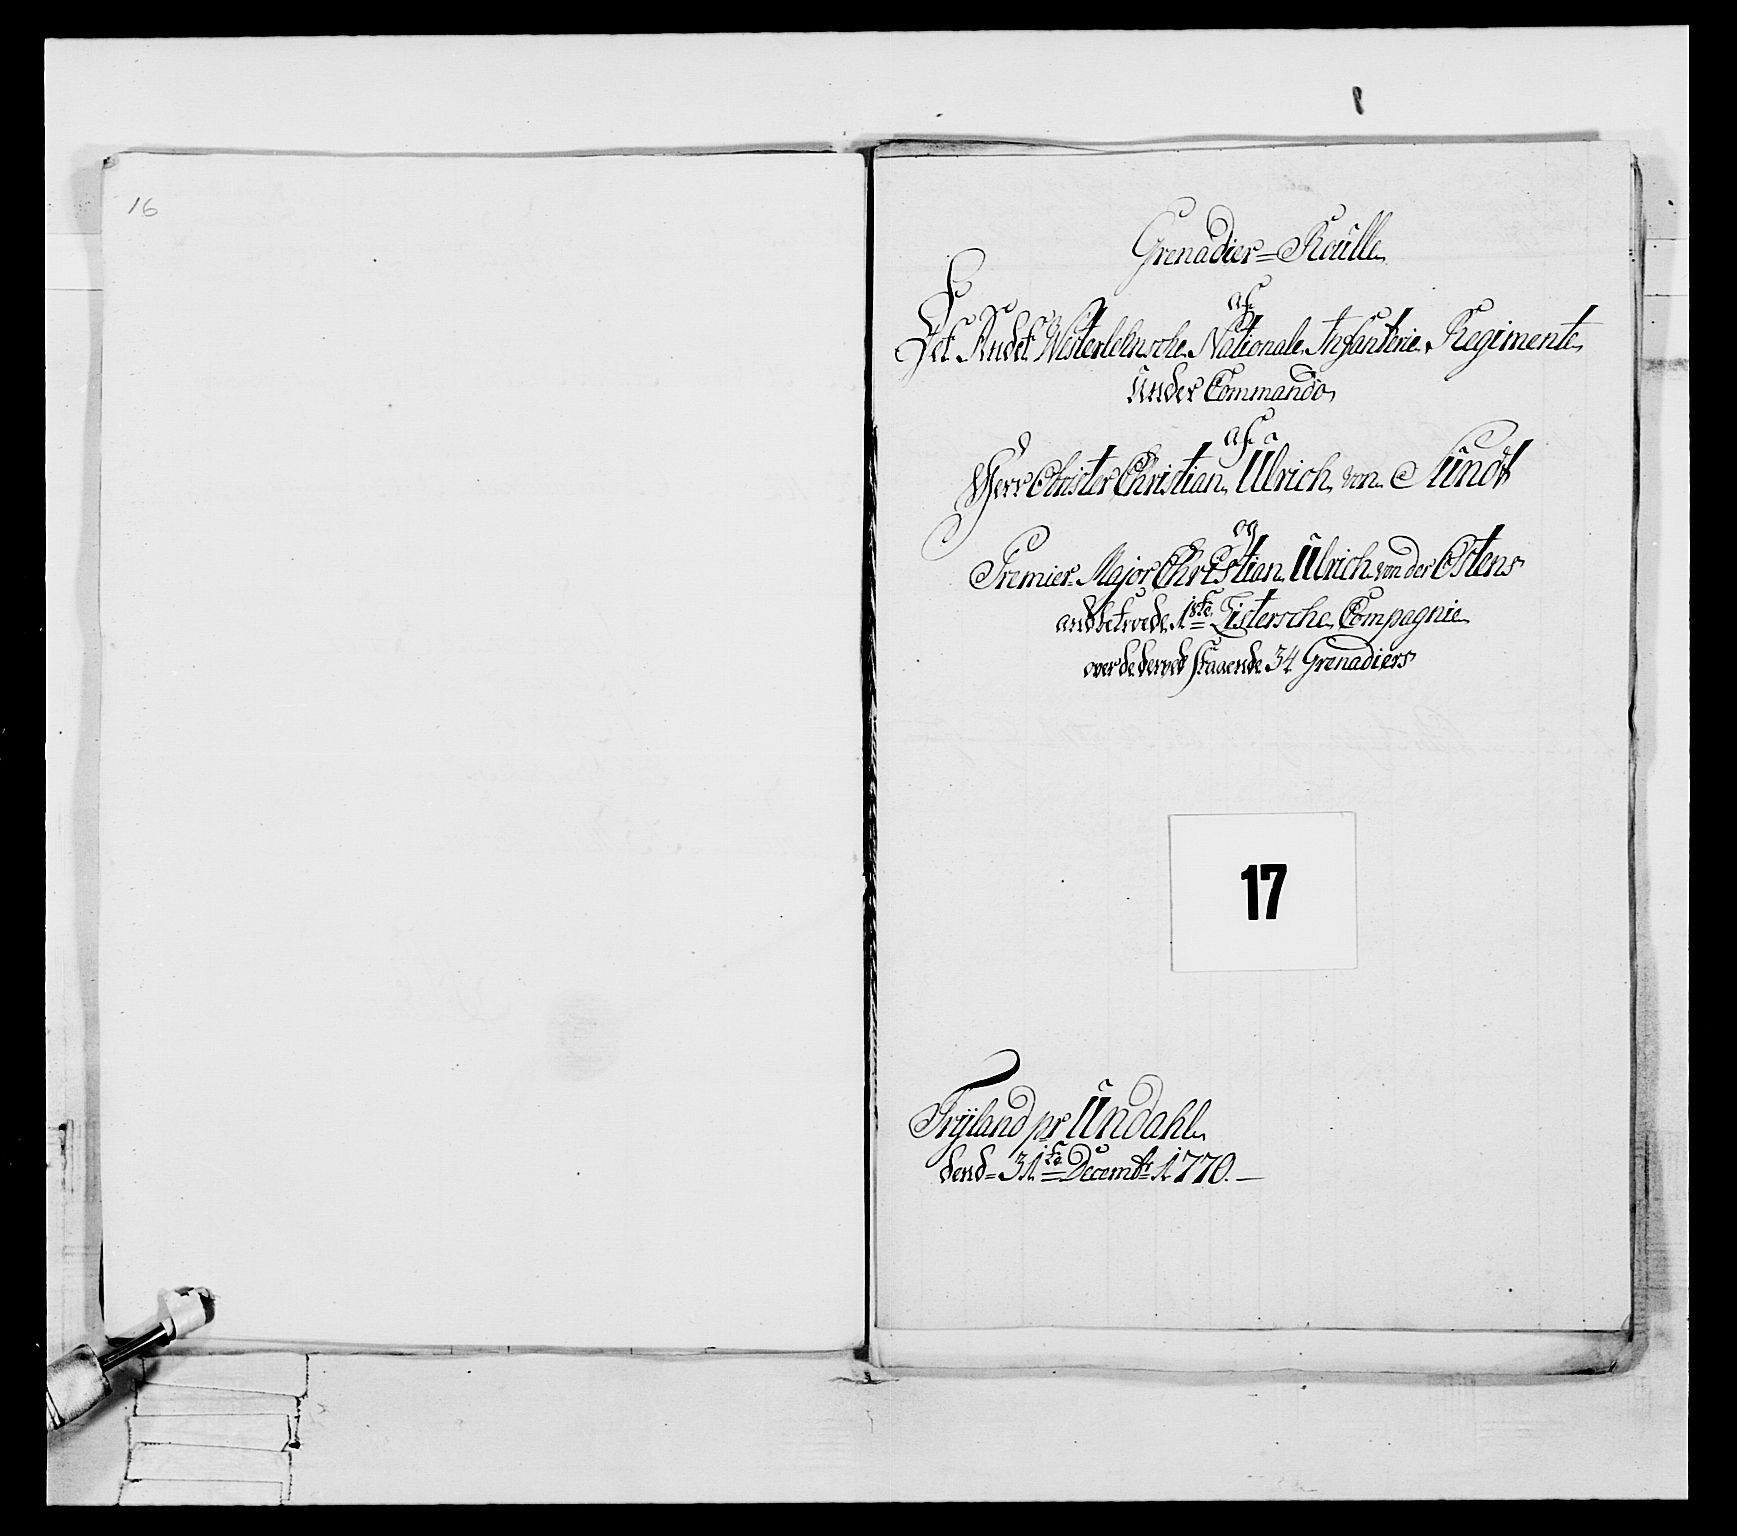 16
Grenadier=Roulle
af
Det Andet Westerlehnsche Nationale Infanterie Regimente
under Commando
af
Herr Obrister Christian Ulrich von Sundt
og
Premier Major Christian Ulrich von der Ostens
andbetroede 1ste Listersche Compagnie
over de derved staaende 34 Grenadiers
17
Trÿland pr Undahl
dend= 31te Decembr 1770.